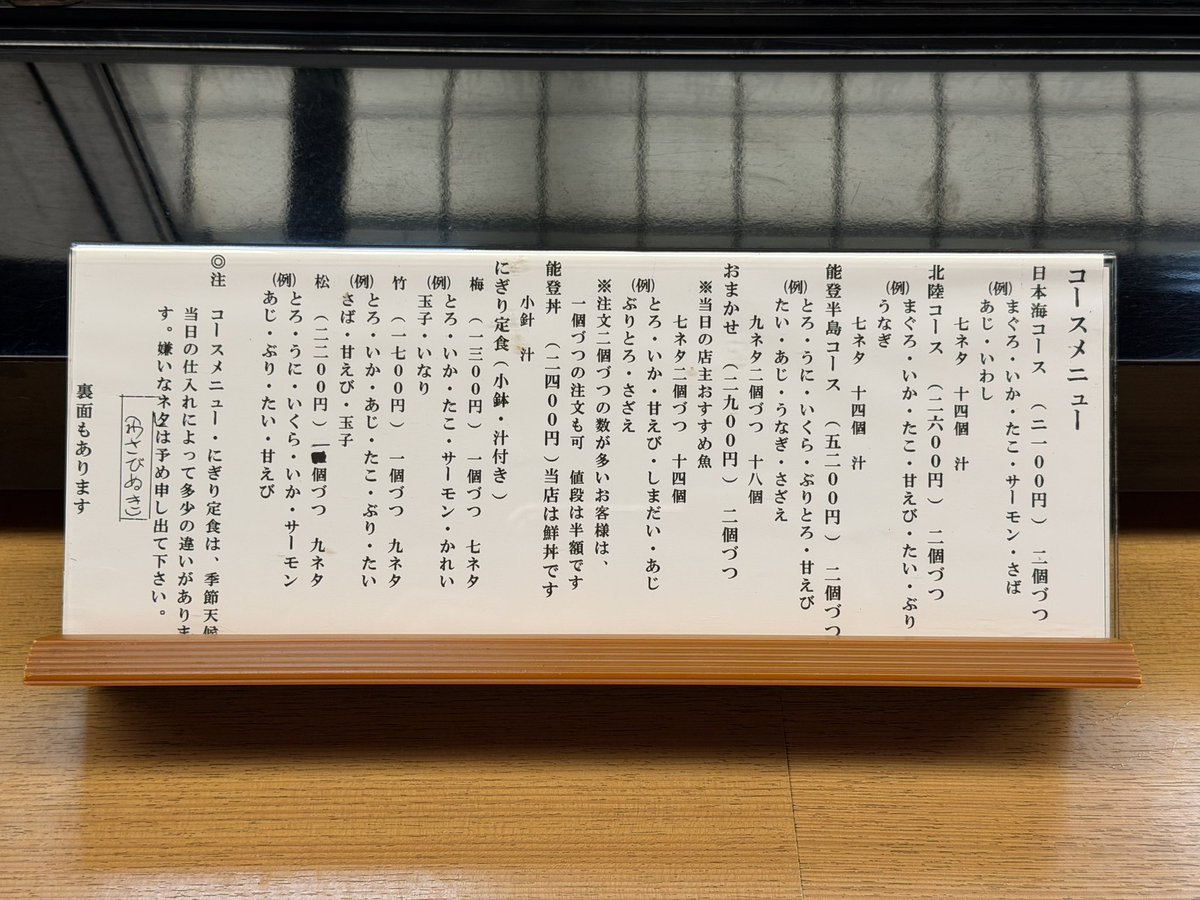 コースメニュー
日本海コース　（二一００円）　二個づつ
㈲まぐろ・いか・たこ・サーモン・さば
あじ・いわし
七ネタ　十四個　汁
北陸コース　（二六００円）　二個づつ
（例）まぐろ・いか・たこ・甘えび・たい・ぶり
うなぎ
七ネタ　十四個　汁
能登半島コース　（五二００円）　二個づつ
（例）とろ・うに・いくら・ぶりとろ・甘えび
たい・あじ・うなぎ・さざえ
九ネタ二個づつ　十八個
おまかせ　（二九００円）　二個づつ
※当日の店主おすすめ魚
七ネタ二個づつ　十四個
（例）とろ・いか・甘えび・しまだい・あじ
ぶりとろ・さざえ
※注文二個づつの数が多いお客様は、
一個づつの注文も可　値段は半額です
能登丼　（二四００円）当店は鮮丼です
小針　汁
にぎり定食（小鉢・汁付き）
梅　（一三００円）　一個づつ　七ネタ
（例）とろ・いか・たこ・サーモン・かれい
玉子・いなり
竹　（一七００円）　一個づつ　九ネタ
（例）とろ・いか・あじ・たこ・ぶり・たい
さば・甘えび・玉子
松　（二二００円）　一個づつ　九ネタ
（例）とろ・うに・いくら・いか・サーモン
あじ・ぶり・たい・甘えび
◎注　コースメニュー・にぎり定食は、季節天候
当日の仕入れによって多少の違いがありま
す。嫌いなネタは予め申し出て下さい。
（わさびぬき）
裏面もあります